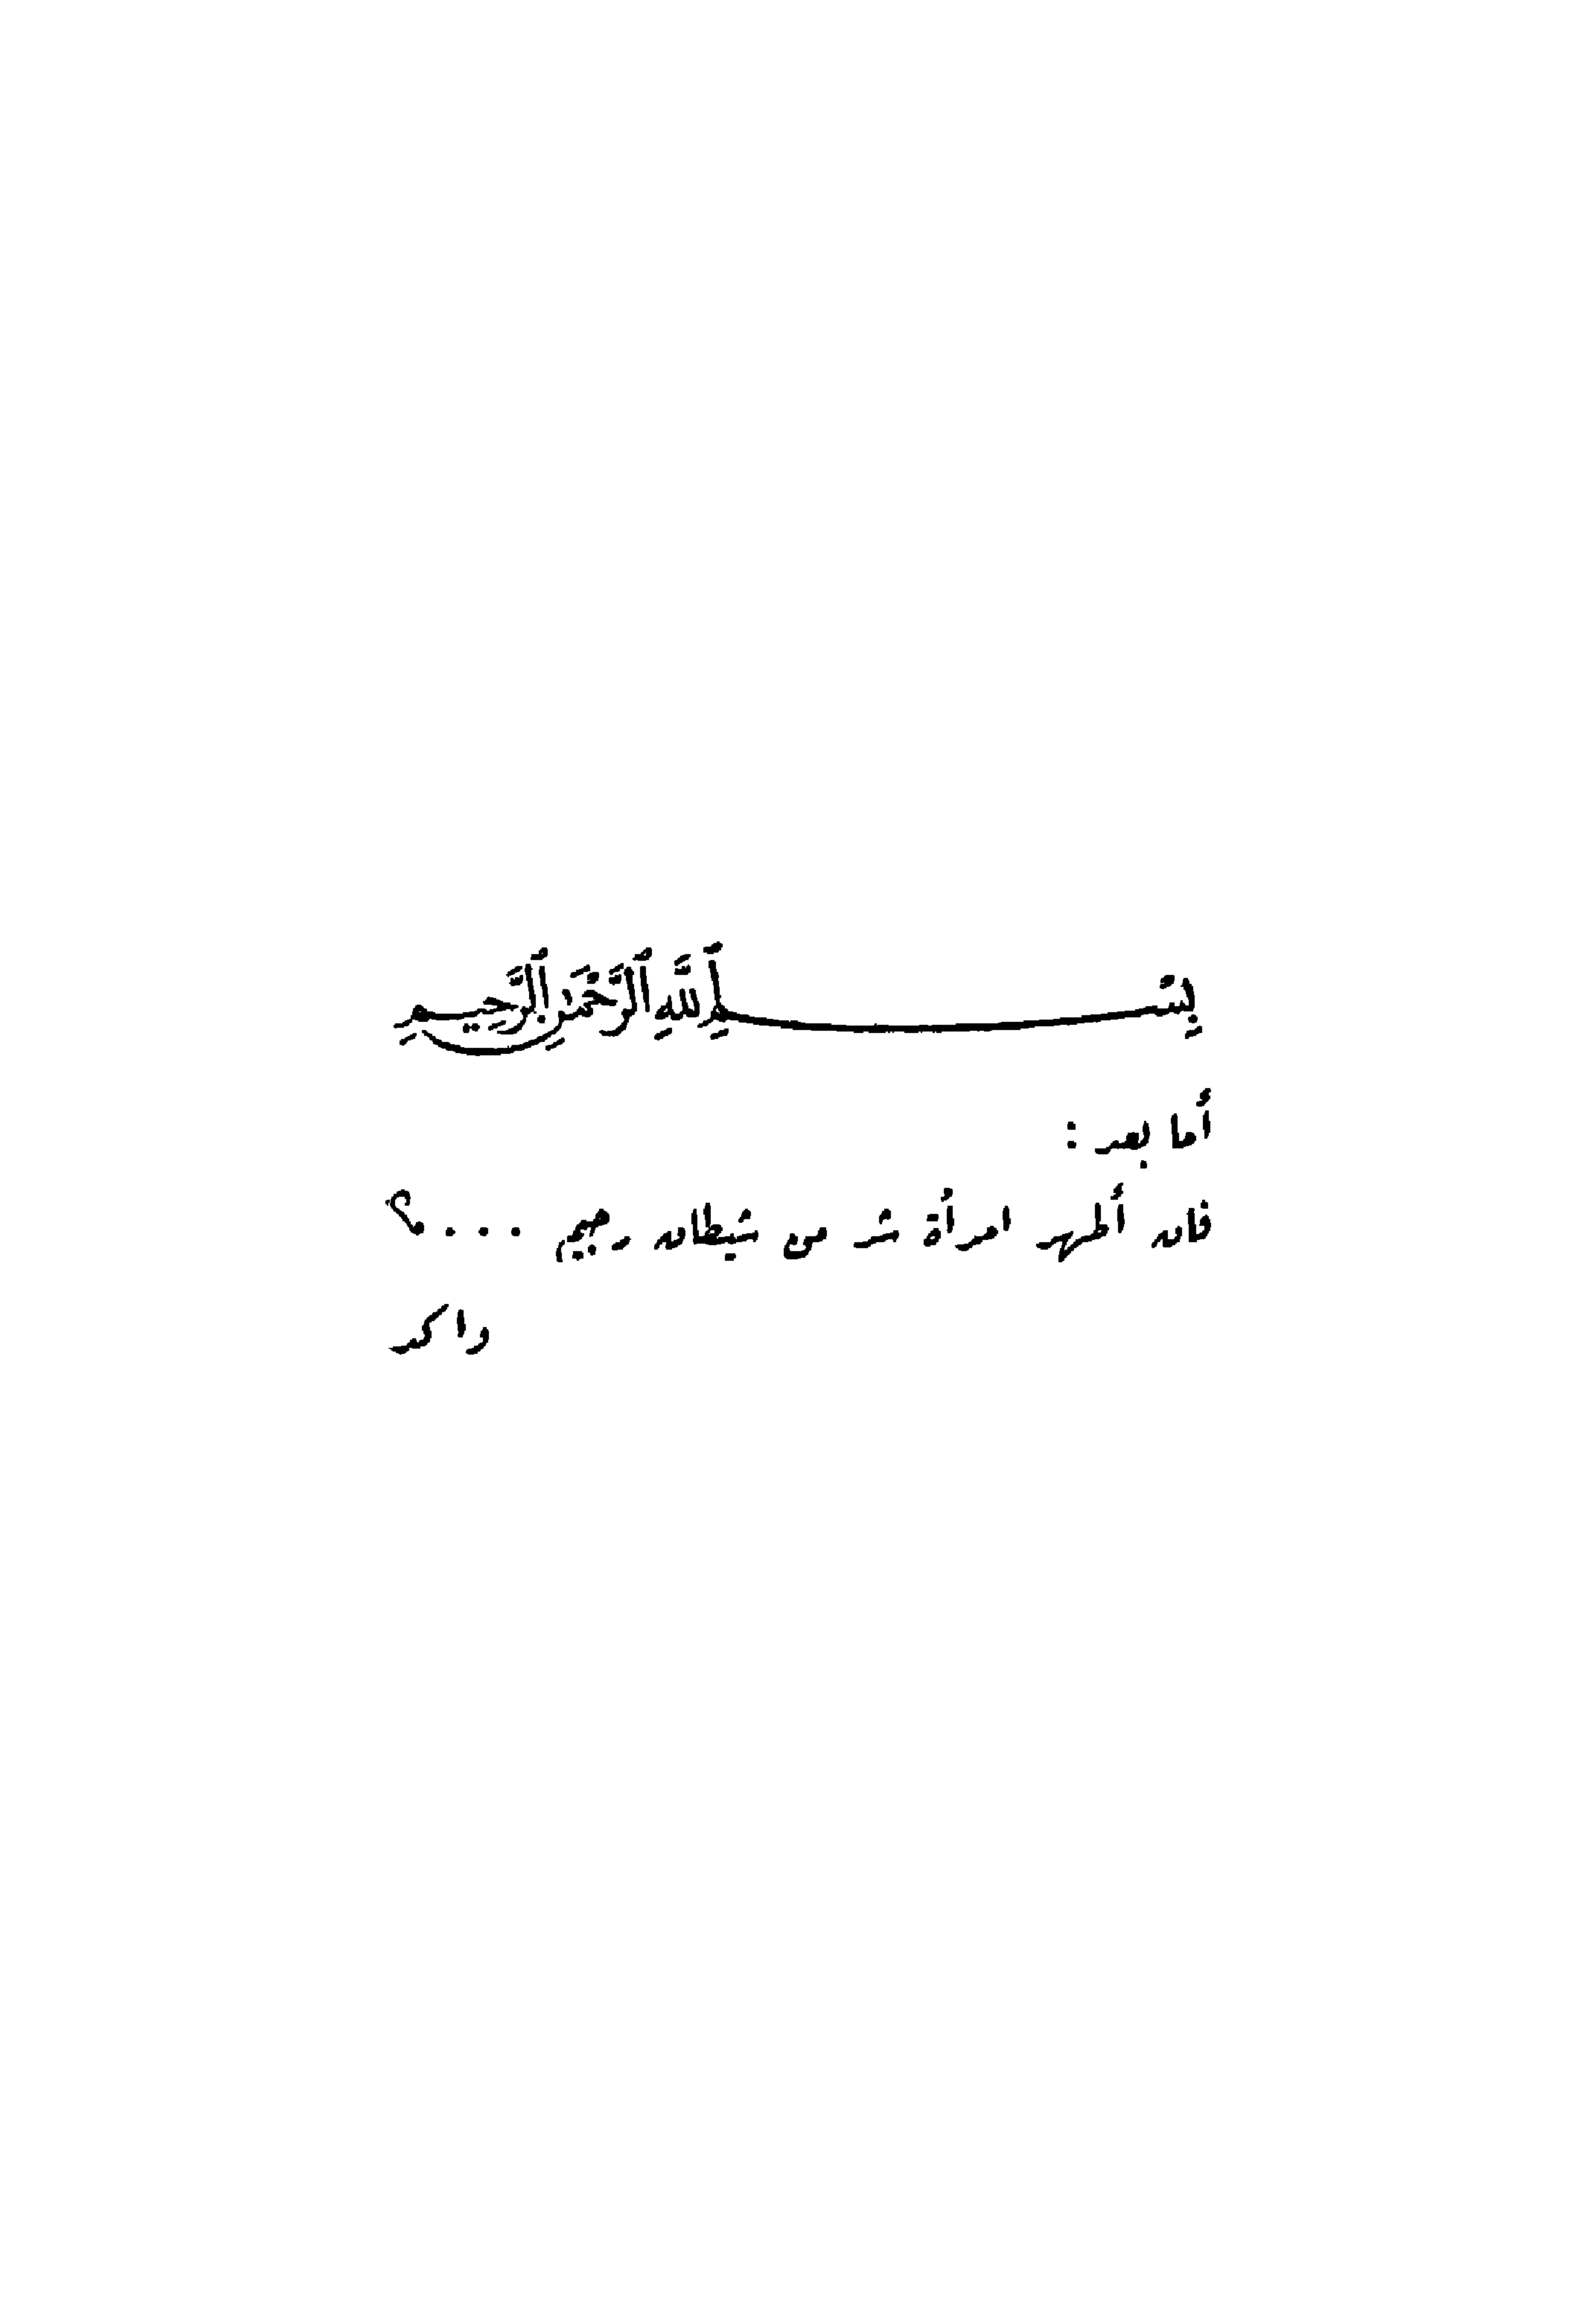 بِسْمِ اللَّهِ الرَّحْمَنِ الرَّحِيمِ
أما بعد :
فان أطهر امرأة شر من شيطان رجيم . . . ؟